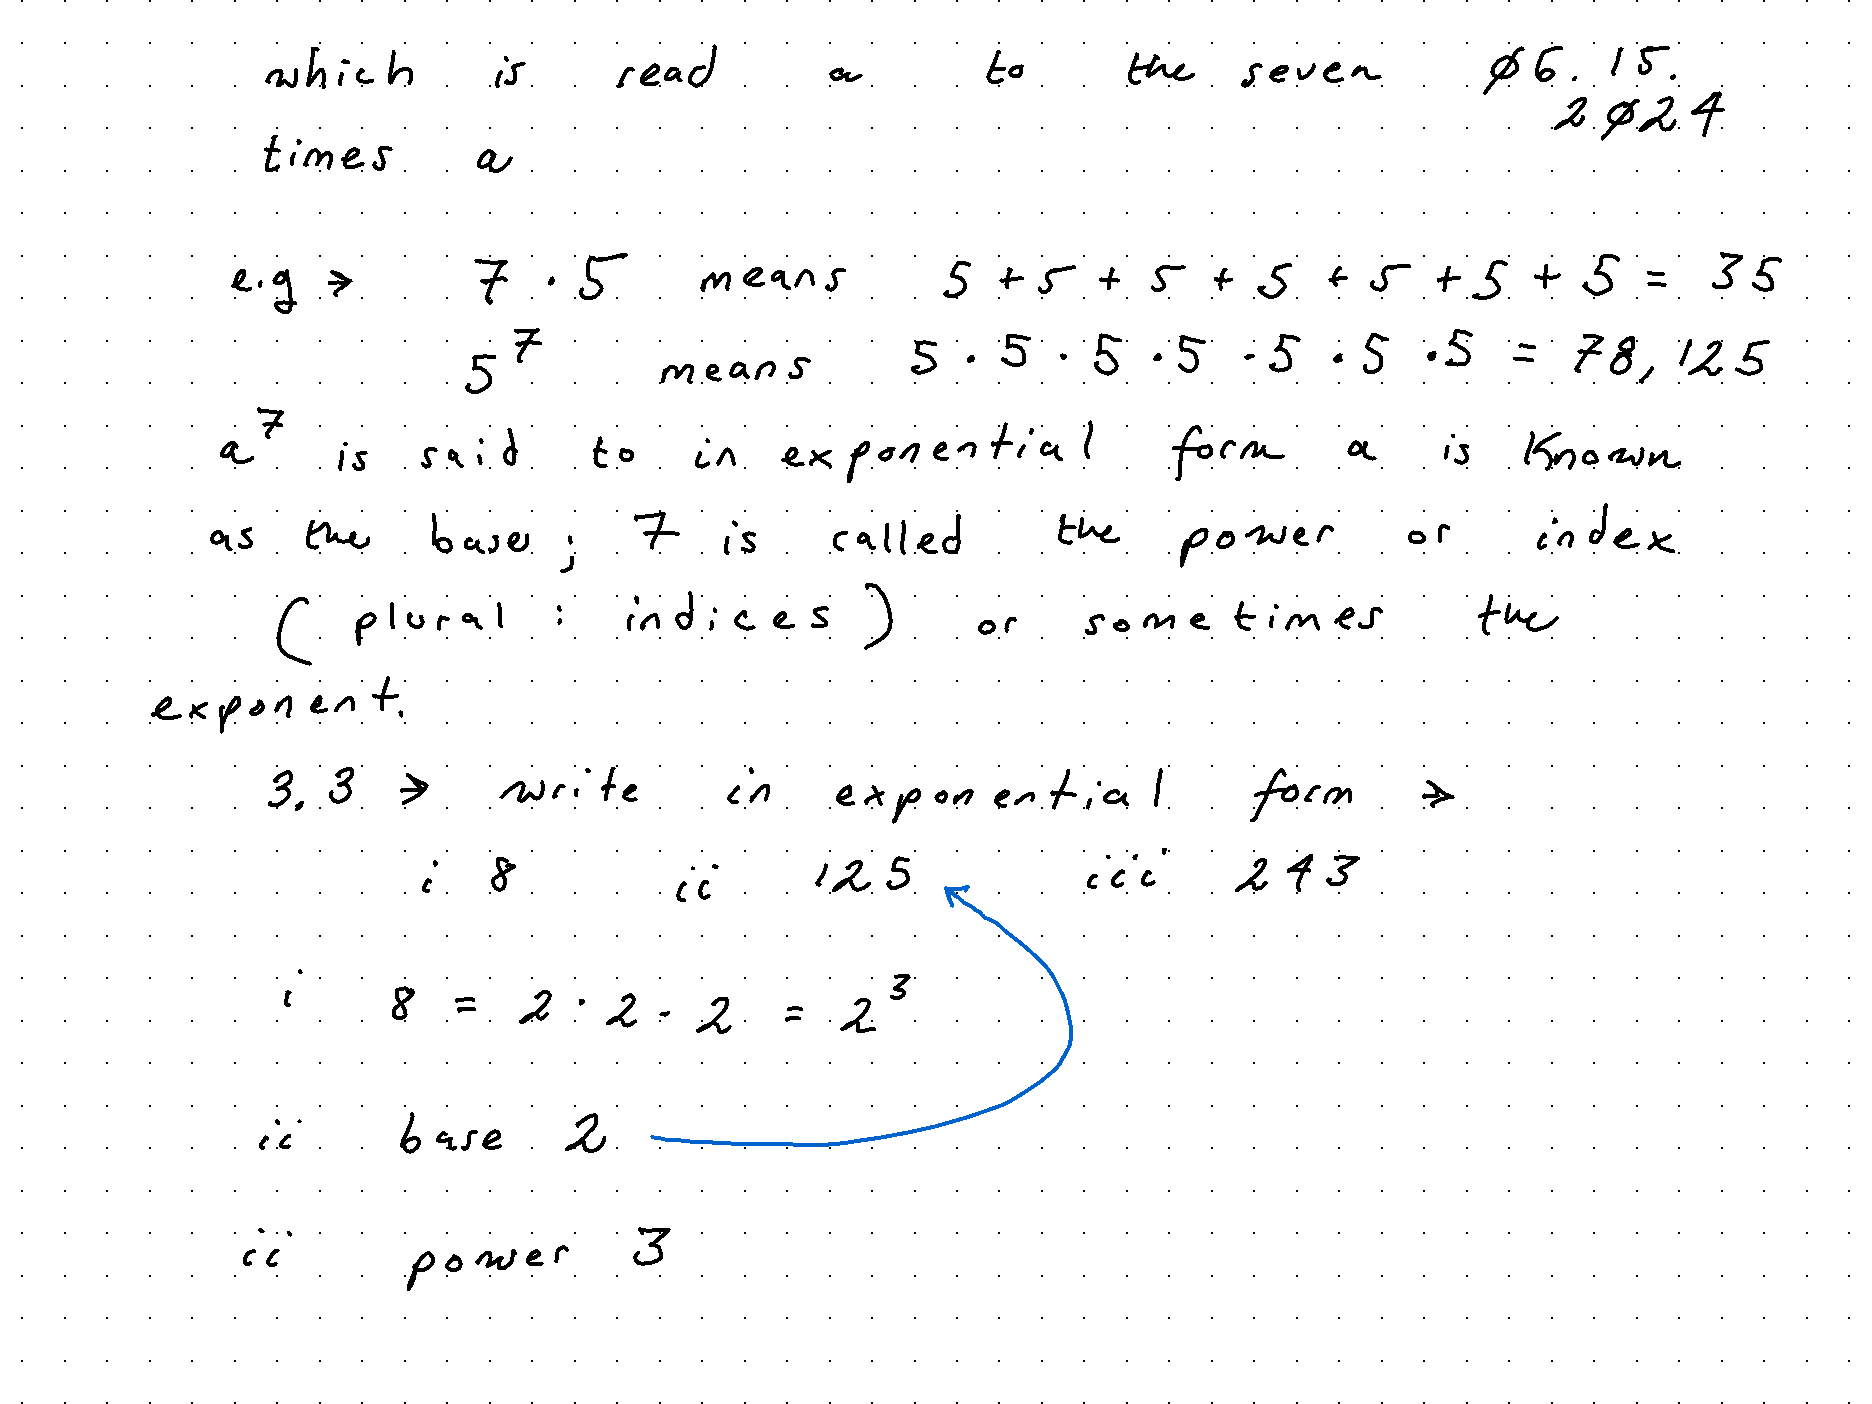 which is read a to the seven ø6.15.
2ø24
times a
e.g → 7 · 5 means 5 + 5 + 5 + 5 + 5 + 5 + 5 = 35
5⁷ means 5 · 5 · 5 · 5 · 5 · 5 · 5 = 78,125
a⁷ is said to in exponential form a is known
as the base; 7 is called the power or index
(plural : indices) or sometimes the
exponent.
3.3 → write in exponential form →
i 8 ii 125 iii 243
i 8 = 2 · 2 · 2 = 2³
ii base 2
ii power 3